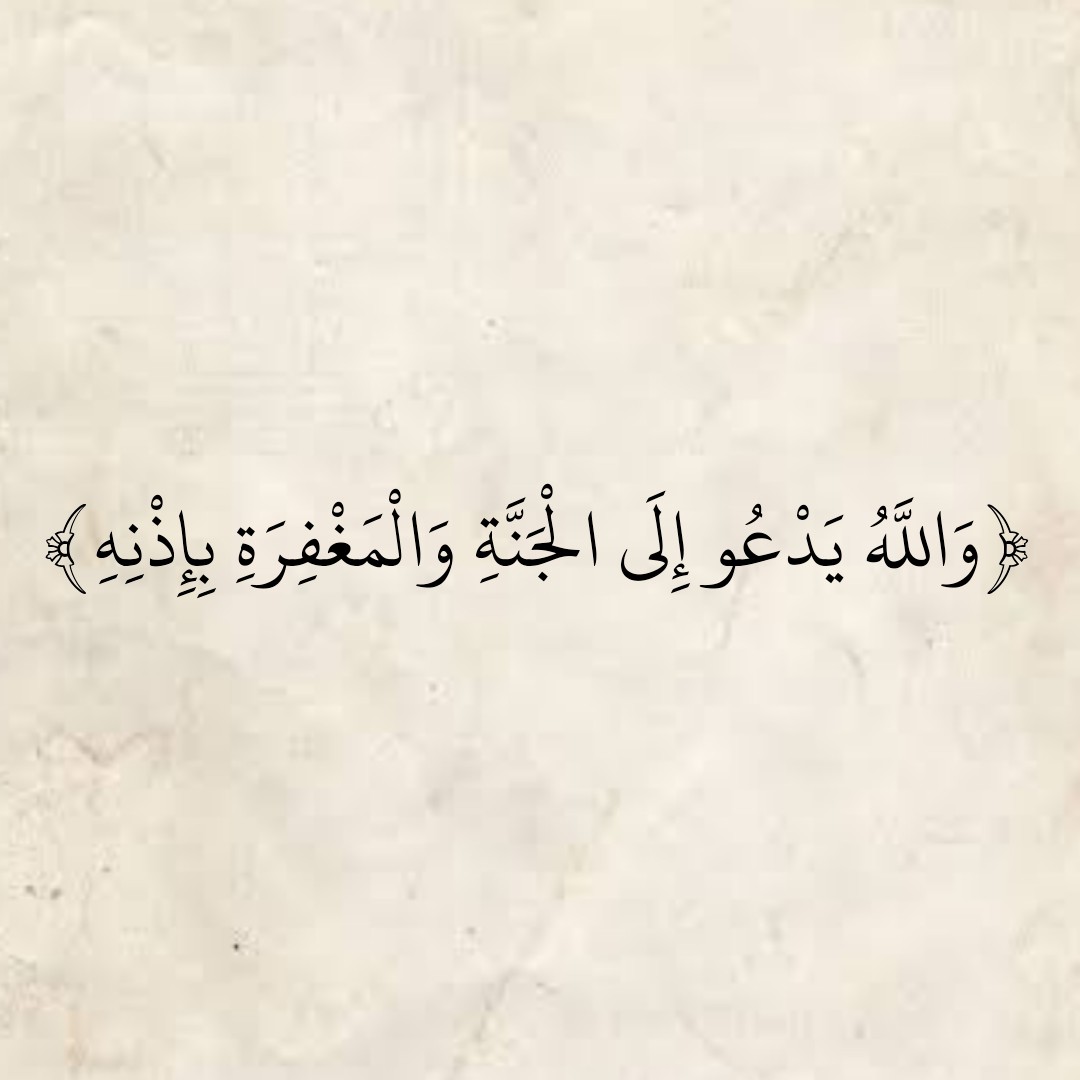 ﴿وَاللَّهُ يَدْعُو إِلَى الْجَنَّةِ وَالْمَغْفِرَةِ بِإِذْنِهِ﴾